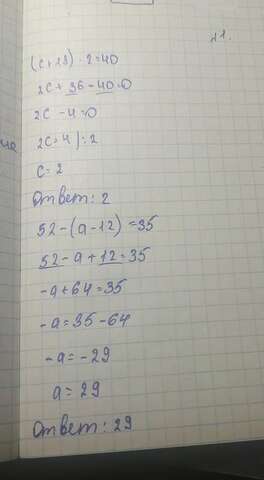 21.
(c+18) · 2=40
2c+36-40=0
2c-4=0
2c=4 |:2
c=2
Ответ: 2
52-(a-12)=35
52-a+12=35
-a+64=35
-a=35-64
-a=-29
a=29
Ответ: 29